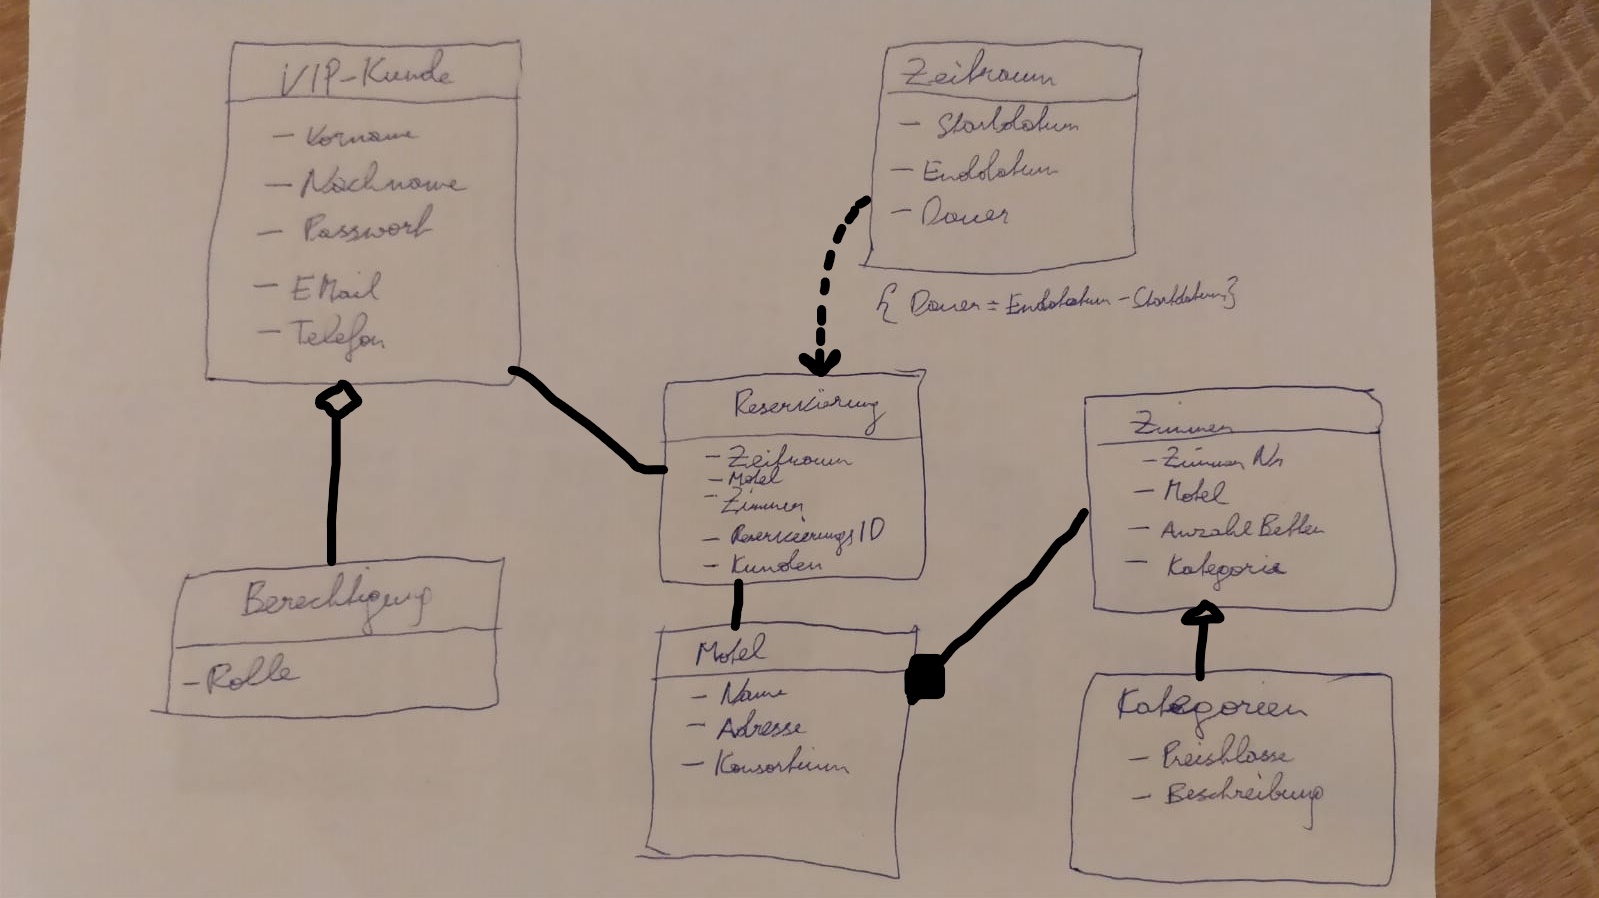 VIP-Kunde
- Vorname
- Nachname
- Passwort
- EMail
- Telefon
Zeitraum
- Startdatum
- Enddatum
- Dauer
{ Dauer = Enddatum - Startdatum}
Reservierung
- Zeitraum
- Motel
- Zimmer
- ReservierungsID
- Kunden
Zimmer
- Zimmer Nr
- Motel
- Anzahl Betten
- Kategorie
Berechtigung
- Rolle
Motel
- Name
- Adresse
- Konsortium
Kategorien
- Preisklasse
- Beschreibung